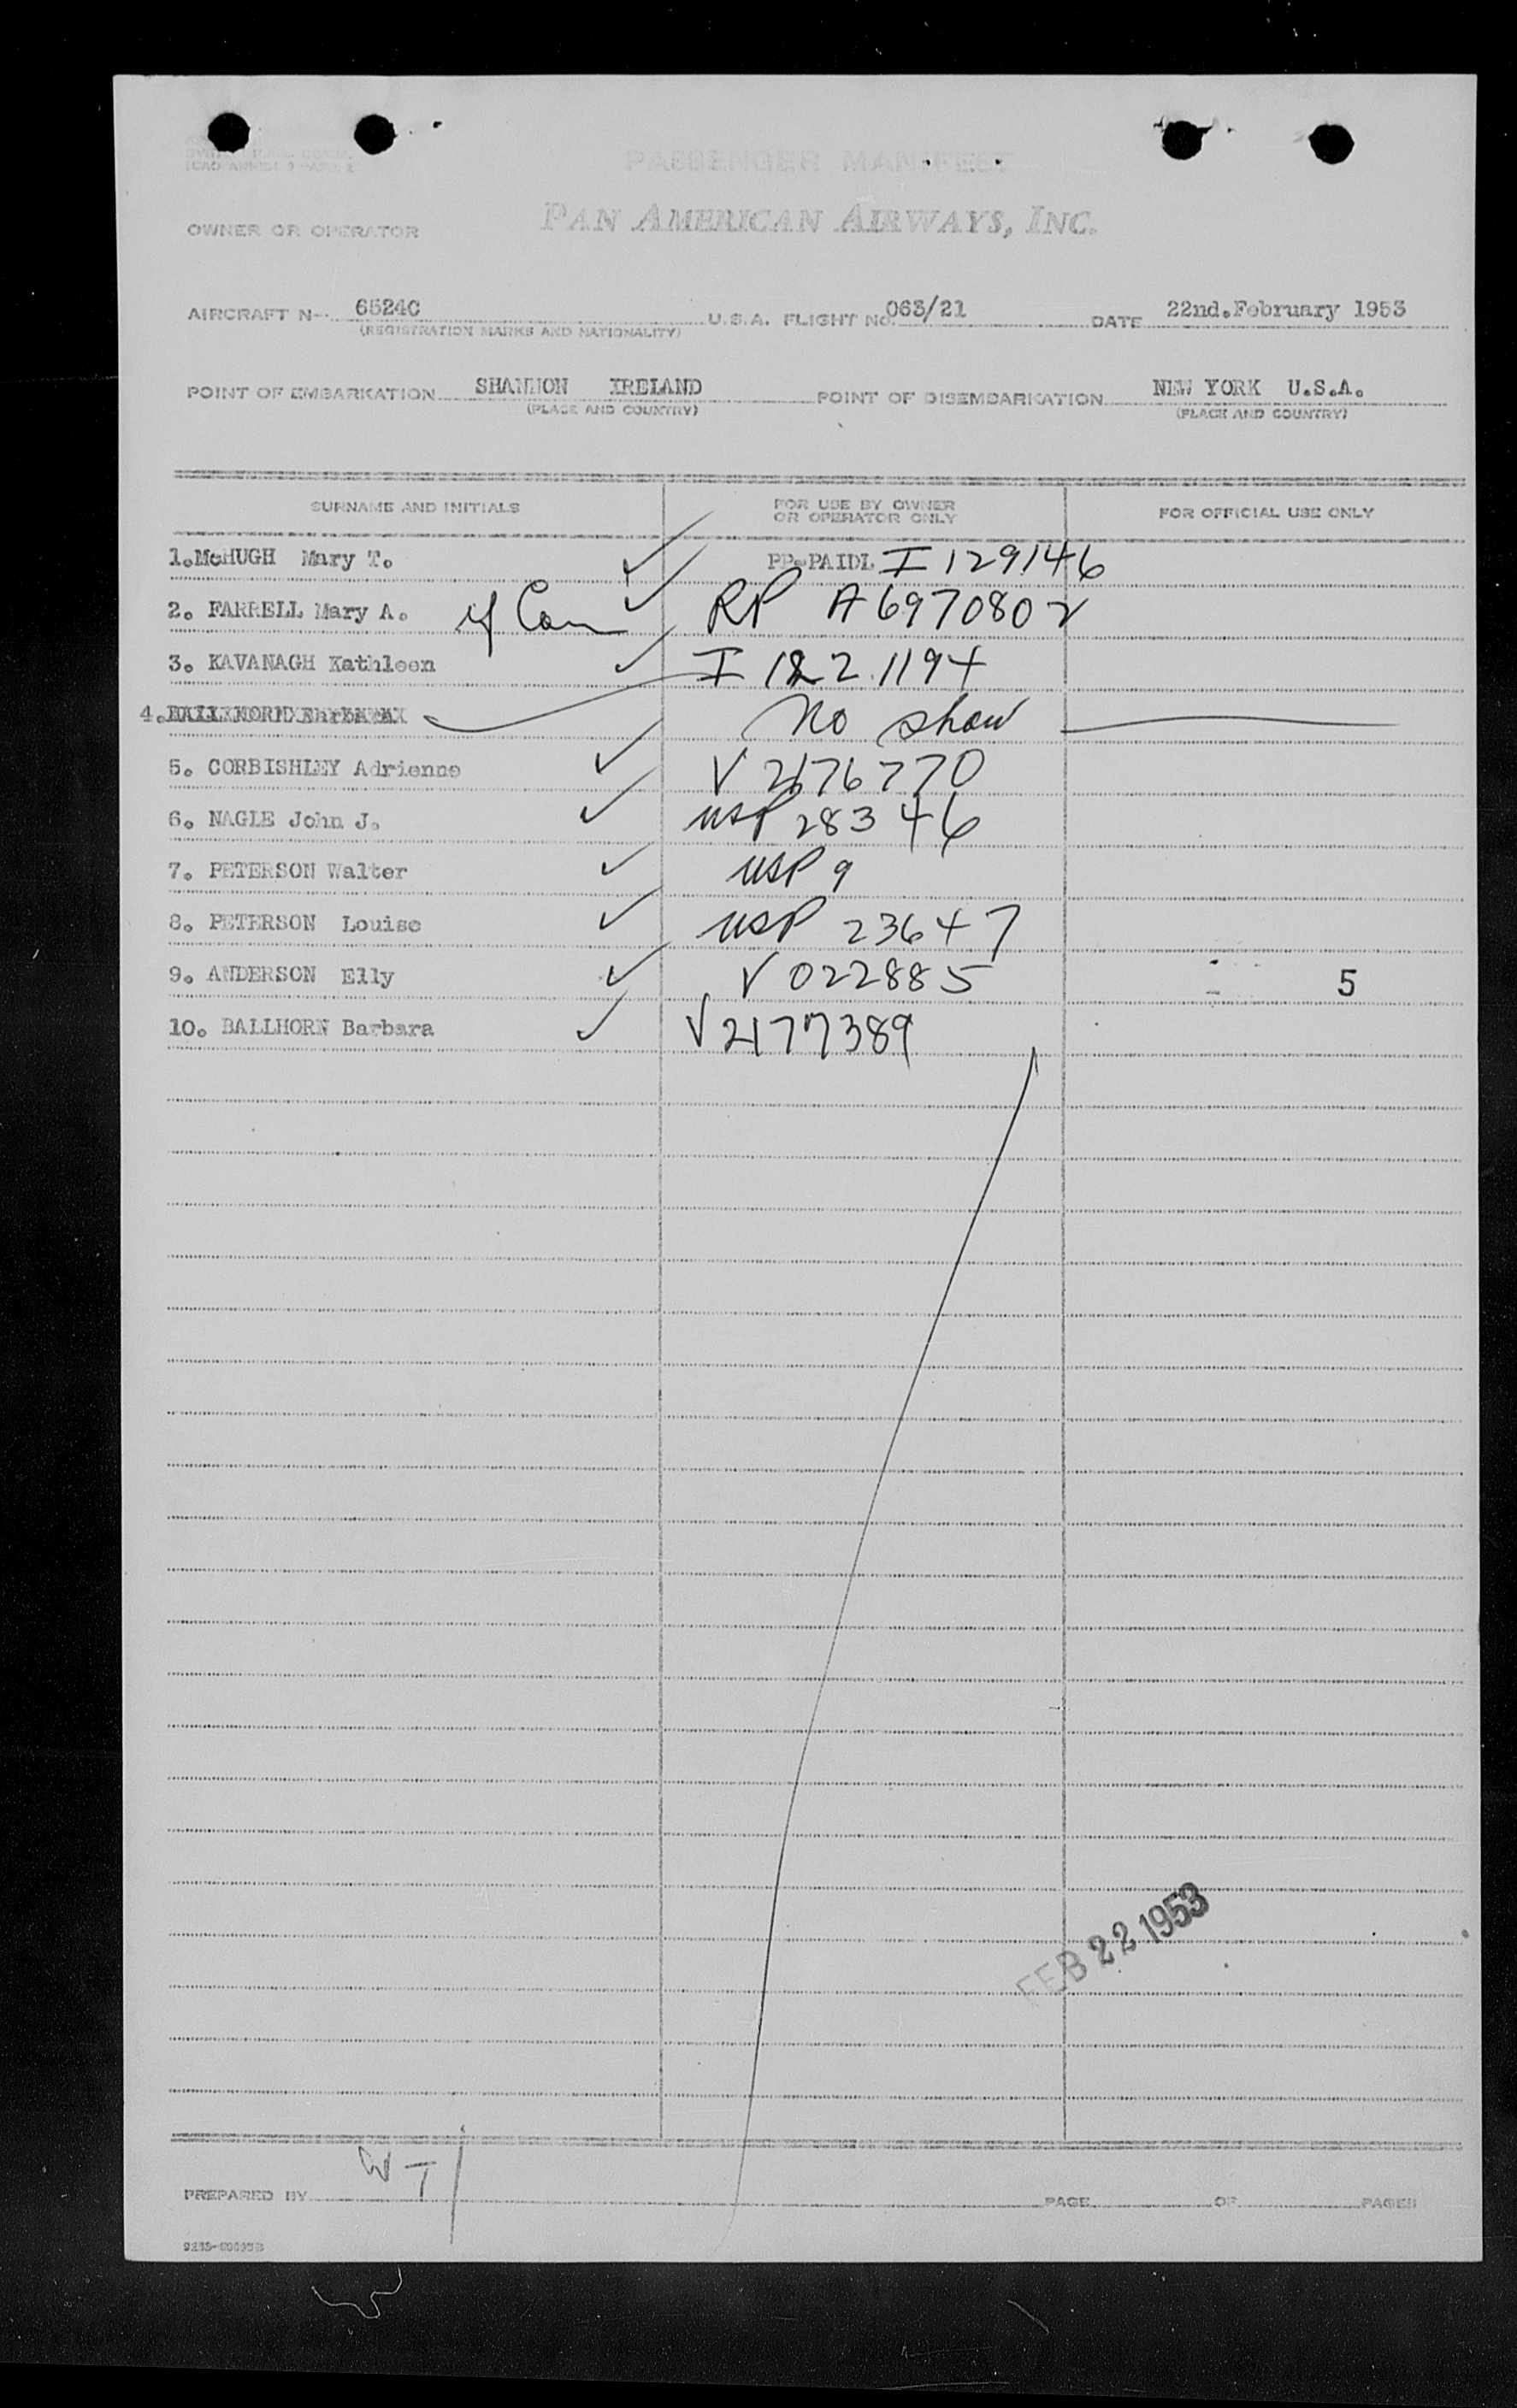 PASSENGER MANIFEST
OWNER OR OPERATOR PAN AMERICAN AIRWAYS, INC.
AIRCRAFT N-- 6524C U.S.A. FLIGHT NO. 063/21 DATE 22nd.February 1953
(REGISTRATION MARKS AND NATIONALITY)
POINT OF EMBARKATION SHANNON IRELAND POINT OF DISEMBARKATION NEW YORK U.S.A.
(PLACE AND COUNTRY) (PLACE AND COUNTRY)
SURNAME AND INITIALS FOR USE BY OWNER OR OPERATOR ONLY FOR OFFICIAL USE ONLY
1.McHUGH Mary T. PP.PAIDL I 129146
2. FARRELL Mary A. RP A6970802
3. KAVANAGH Kathleen I 122 1194
4. No show
5. CORBISHLEY Adrienne V 2176770
6. NAGLE John J. USP 28346
7. PETERSON Walter USP 9
8. PETERSON Louise USP 23647
9. ANDERSON Elly V 022885 5
10. BALLHORN Barbara V2177389
FEB 22 1953
PREPARED BY PAGE OF PAGES